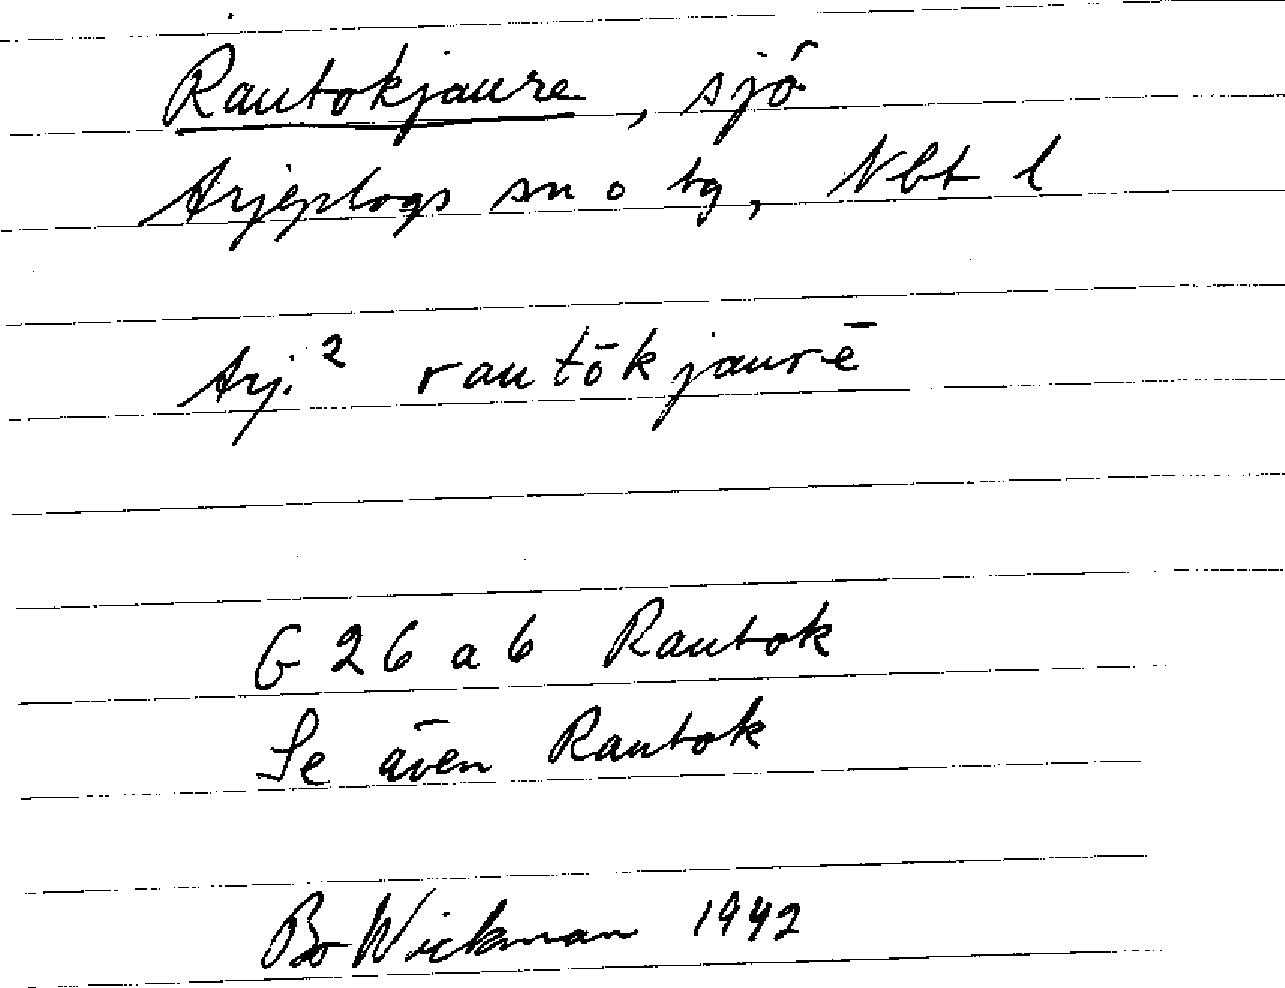 Rautokjaure, sjö
Arjeplogs sn o tg, Nbt l
Arj.² rautōkjaurē
G 26 a 6 Rautok
Se även Rautok
Bo Wickman 1942